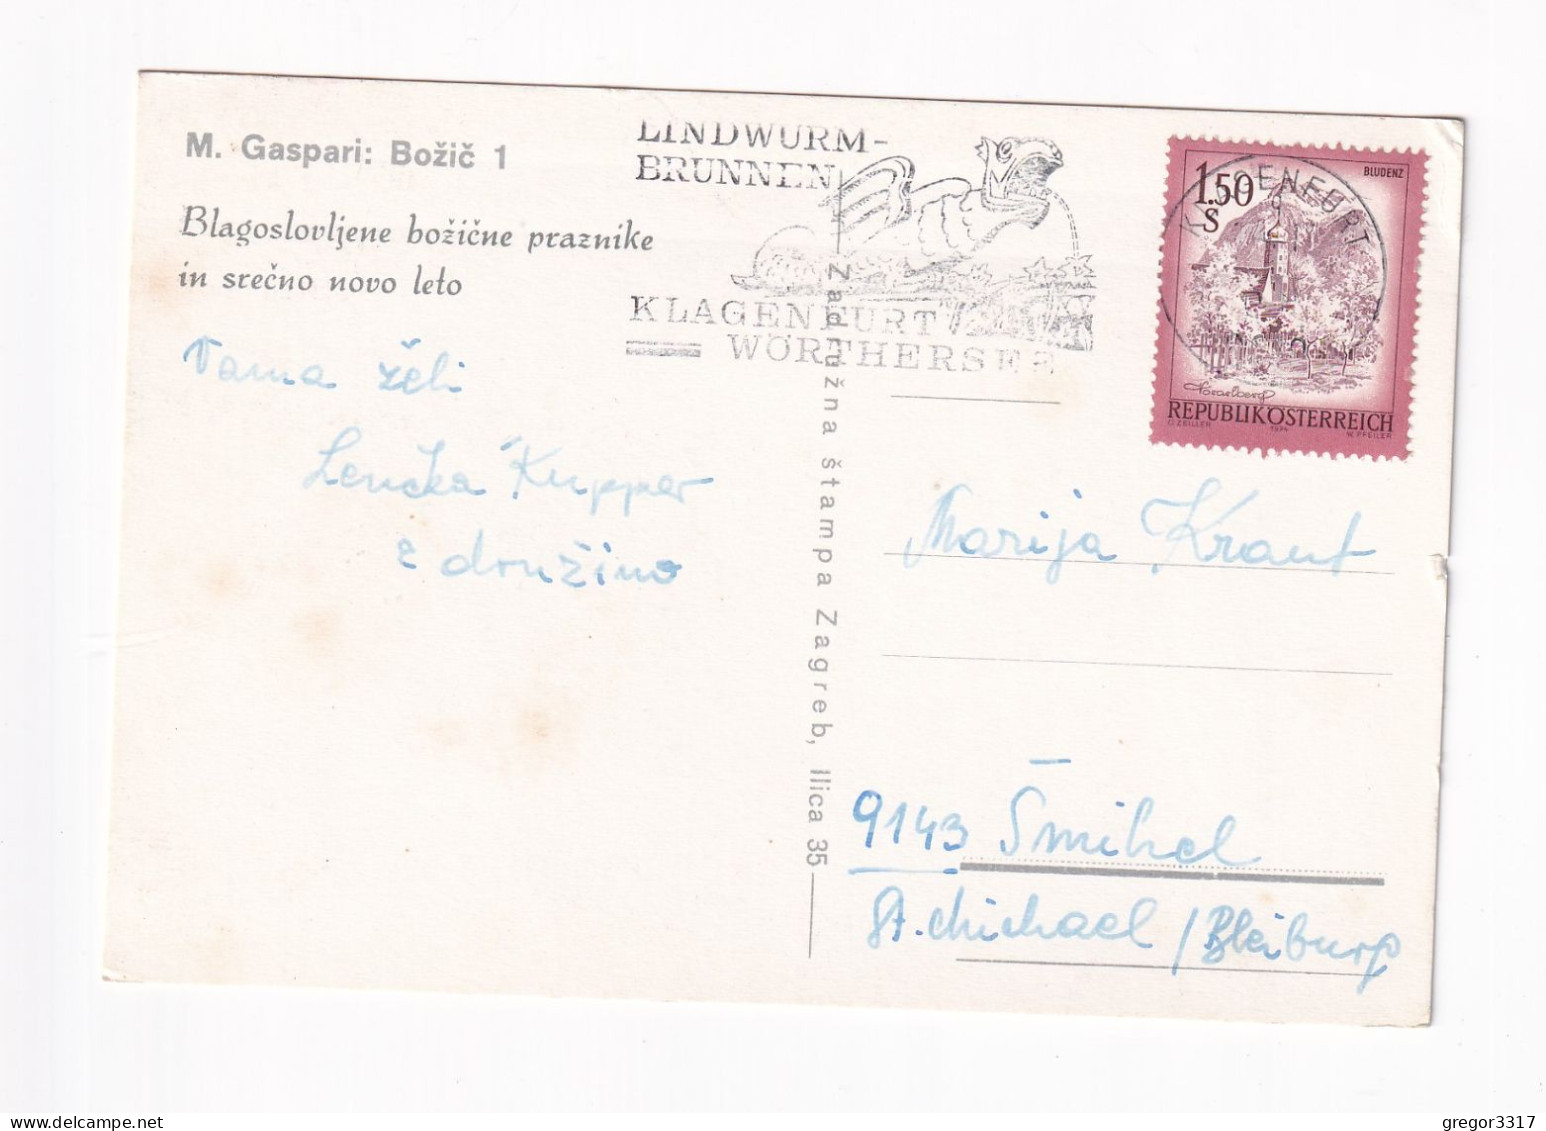 M. Gaspari: Božič 1
Blagoslovljene božične praznike
in srečno novo leto
Vama želi
Lencka Kupper
z družino
LINDWURM-
BRUNNEN
KLAGENFURT
WÖRTHERSEE
Zadružna štampa Zagreb, Ilica 35
1.50
S
BLUDENZ
KLAGENFURT
Vorarlberg
REPUBLIK ÖSTERREICH
O.ZEILLER 1974 W.PFEILER
Marija Kraut
9143 Šmihel
St. Michael / Bleiburg
gregor3317